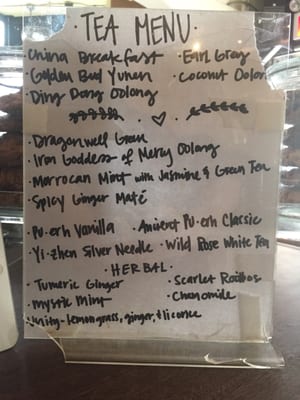 · TEA MENU ·
· China Breakfast · Earl Grey
· Golden Bud Yunen · Coconut Oolon
· Ding Dong Oolong
· Dragonwell Green
· Iron Goddess of Mercy Oolong
· Morrocan Mint with Jasmine & Green Tea
· Spicy Ginger Maté
· Pu·erh Vanilla · Ancient Pu·erh Classic
· Yi-Zhen Silver Needle · Wild Rose White Tea
· HERBAL ·
· Tumeric Ginger · Scarlet Rooibos
· Mystic Mint · Chamomile
· Unity - lemongrass, ginger, & licorice